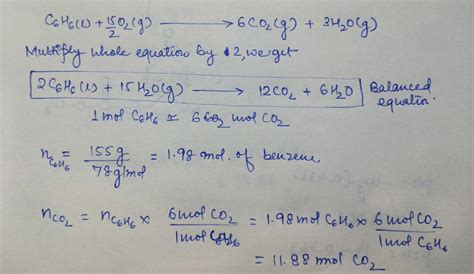 C6H6(l) + 15/2 O2(g) ⟶ 6CO2(g) + 3H2O(g)
Multiply whole equation by 2, we get
2C6H6(l) + 15H2O(g) ⟶ 12CO2 + 6H2O Balanced equation.
1 mol C6H6 ≃ 6 mol CO2
nC6H6 = 155g / 78g/mol = 1.98 mol. of benzene
nCO2 = nC6H6 × 6mol CO2 / 1mol C6H6 = 1.98 mol C6H6 × 6 mol CO2 / 1mol C6H6
= 11.88 mol CO2